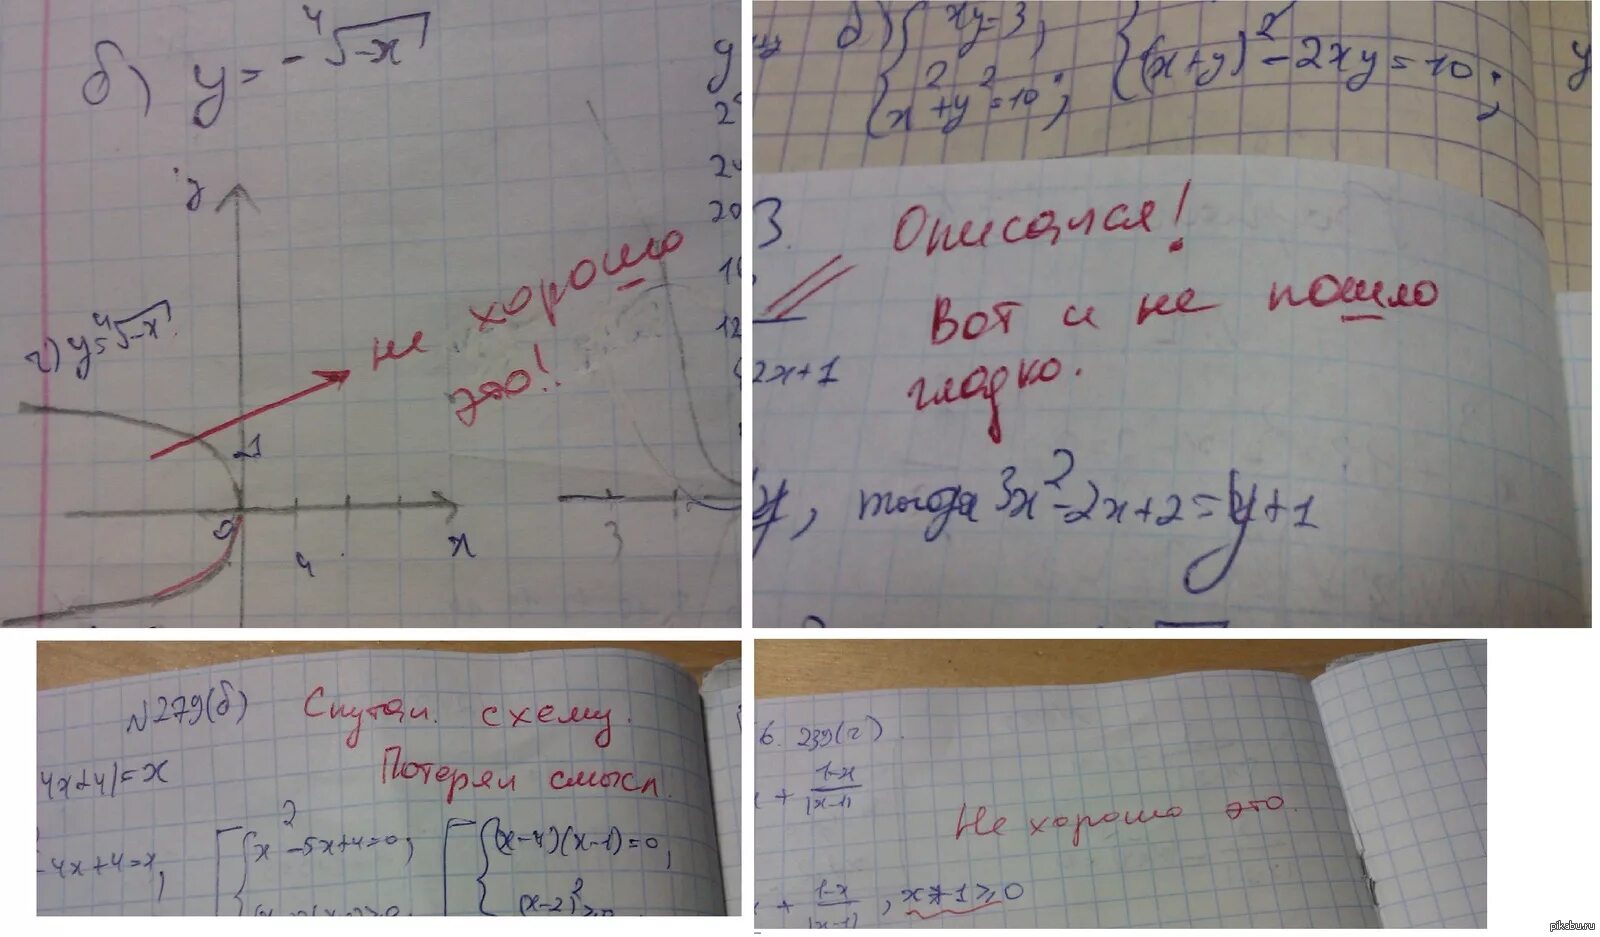 б) y = -⁴√-x
y
г) y = ⁴√-x
не хорошо
это!
1
0
4
x
3
y
2
24
20
16
12
б) { xy = 3,
{ x² + y² = 10;
{ (x+y)² - 2xy = 10;
y
3.
Описался!
Вот и не пошло
гладко.
2x+1
y, тогда 3x² - 2x + 2 = y + 1
N279(б)
Спутал схему.
Потерял смысл.
4x+4|=x
-4x+4=x,
[ { x² - 5x + 4 = 0;
[ { (x-4)(x-1) = 0,
(x-2)² ≥ 0
6. 239(г).
+ 1-x / |x-1|
Не хорошо это.
+ 1-x / |x-1| , x≠1≥0
pikabu.ru